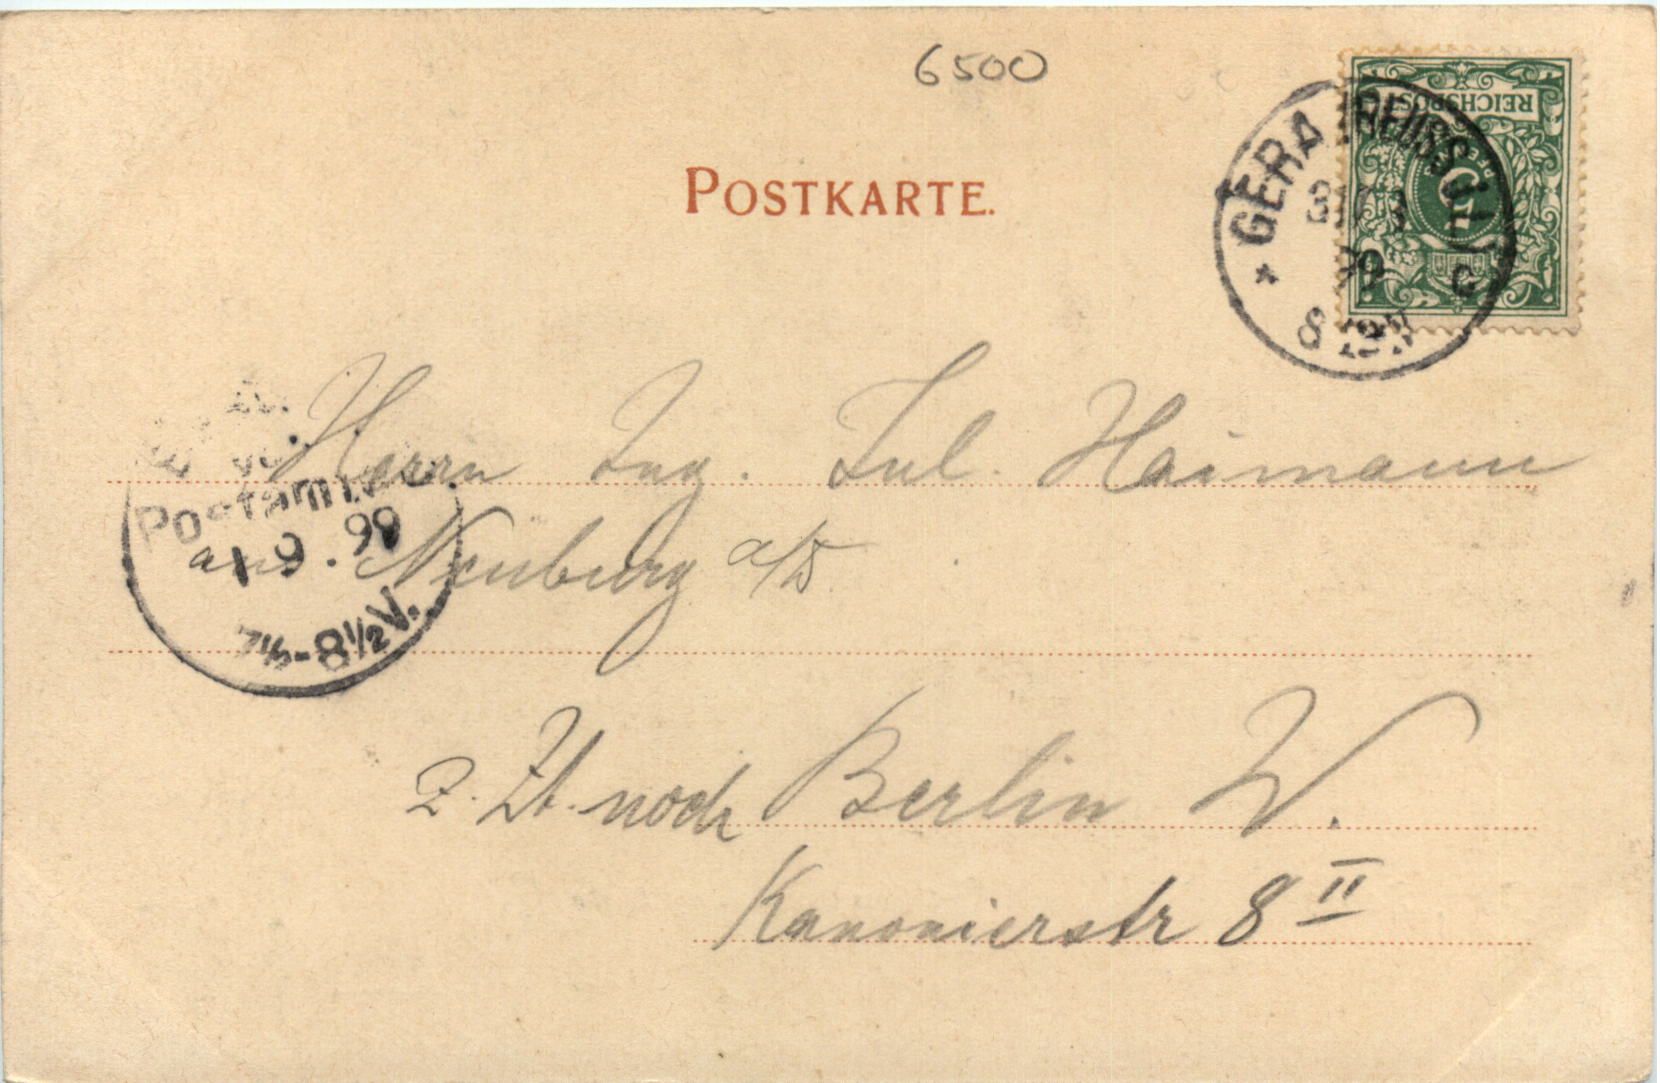 6500
POSTKARTE.
REICHSPOST
5
GERA (REUSS) J.L.
99
C
8
Herrn Ing. Jul. Haimann
aus Neuburg a/D
Postamt
1 9. 99
7½-8½V.
z. Zt. noch Berlin W.
Kanonierstr 8 II